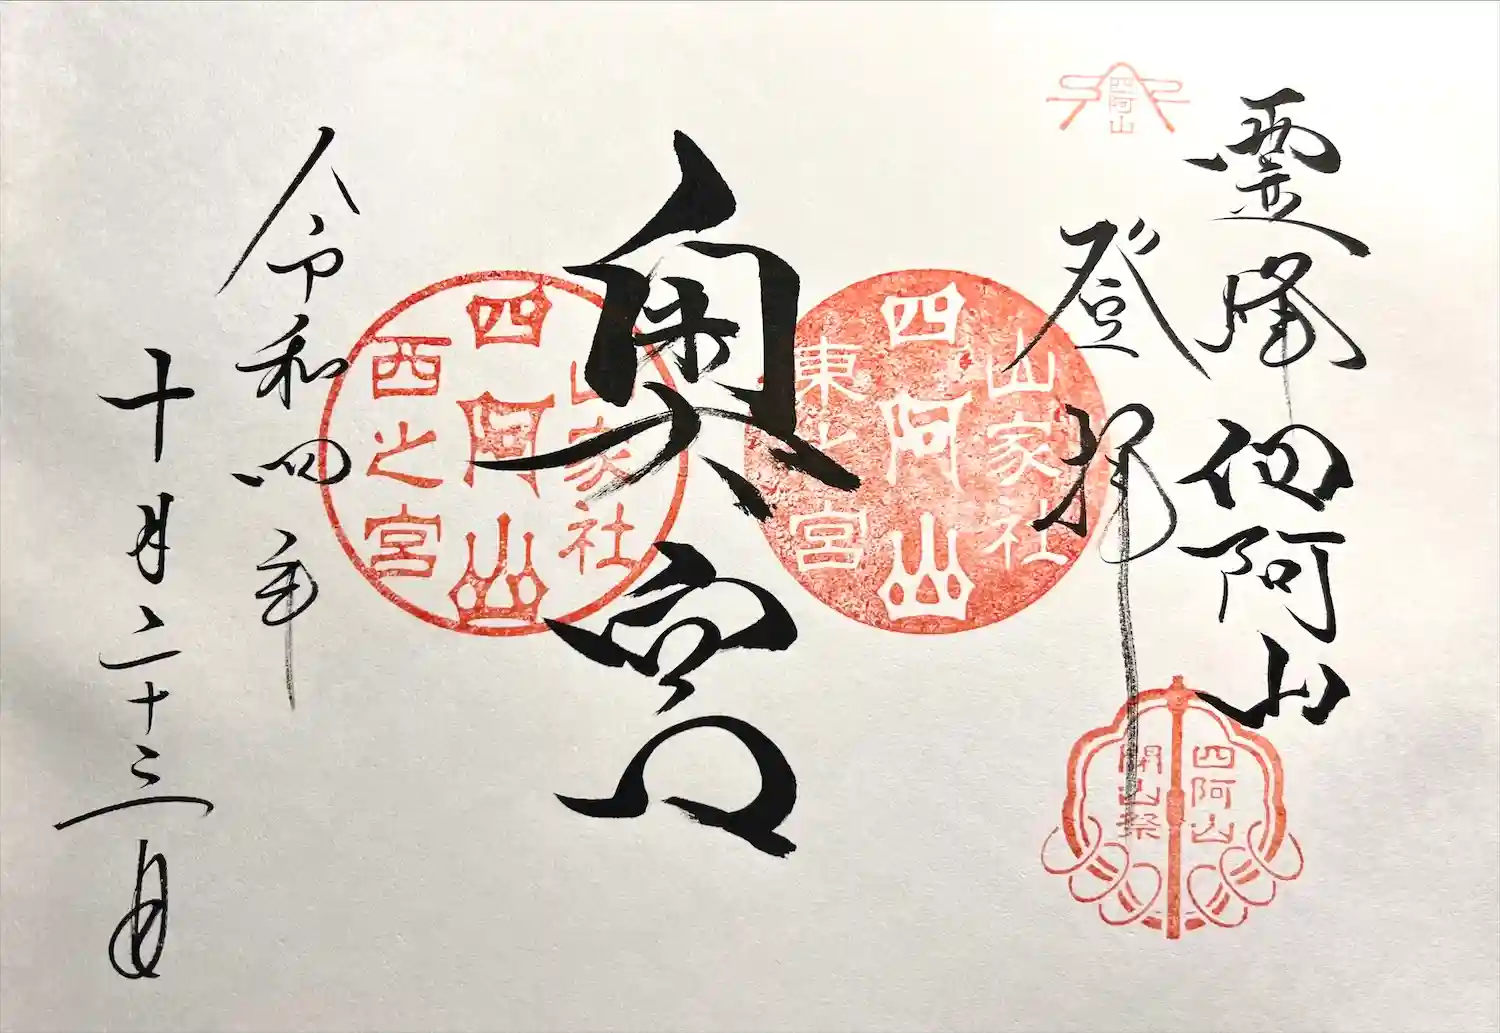 四阿山
霊峰四阿山
登拝
山家社
四阿山
東之宮
四阿山
開山祭
奥宮
山家社
四阿山
西之宮
令和四年
十月二十三日